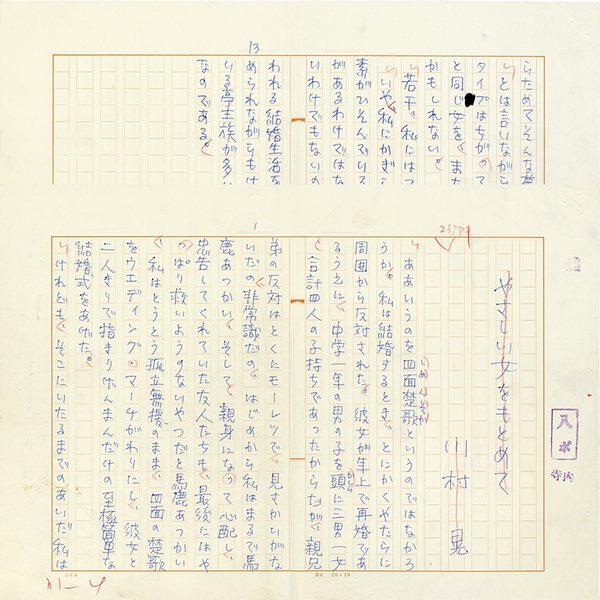 13
らためてそんな
とは言いながら
タイプはちがって
と同じ女を、また
かもしれない。
若干、私には
いや、私にかぎら
素がひそんでいて
があるわけではな
いわけでもないの
われる結婚生活を
められながらもけ
いる亭主族が多い
なのである。
1
やさしい女をもとめて
川村 晃
ああいうのを四面楚歌というのではなかろ
しめんそか
うか。私は結婚するとき、とにかくやたらに
周囲から反対された。彼女が年上で再婚であ
るうえに、中学一年の男の子を頭に三男一女
かしら
合計四人の子持ちであったからだが、親兄
弟の反対はとくにモーレツで、見さかいがな
いだの、非常識だの、はじめから私はまるで馬
鹿あつかい、そして、親身になって心配し、
忠告してくれていた友人たちも、最後にはや
っぱり救いようのないやつだと馬鹿あつかい
私はとうとう孤立無援のまま、四面の楚歌
をウエディング・マーチがわりにし、彼女と
二人きりで指きりげんまんだけの至極簡単な
結婚式をあげた。
けれども、そこにいたるまでのあいだ、私は
入ポ
寺内
B4 20×20